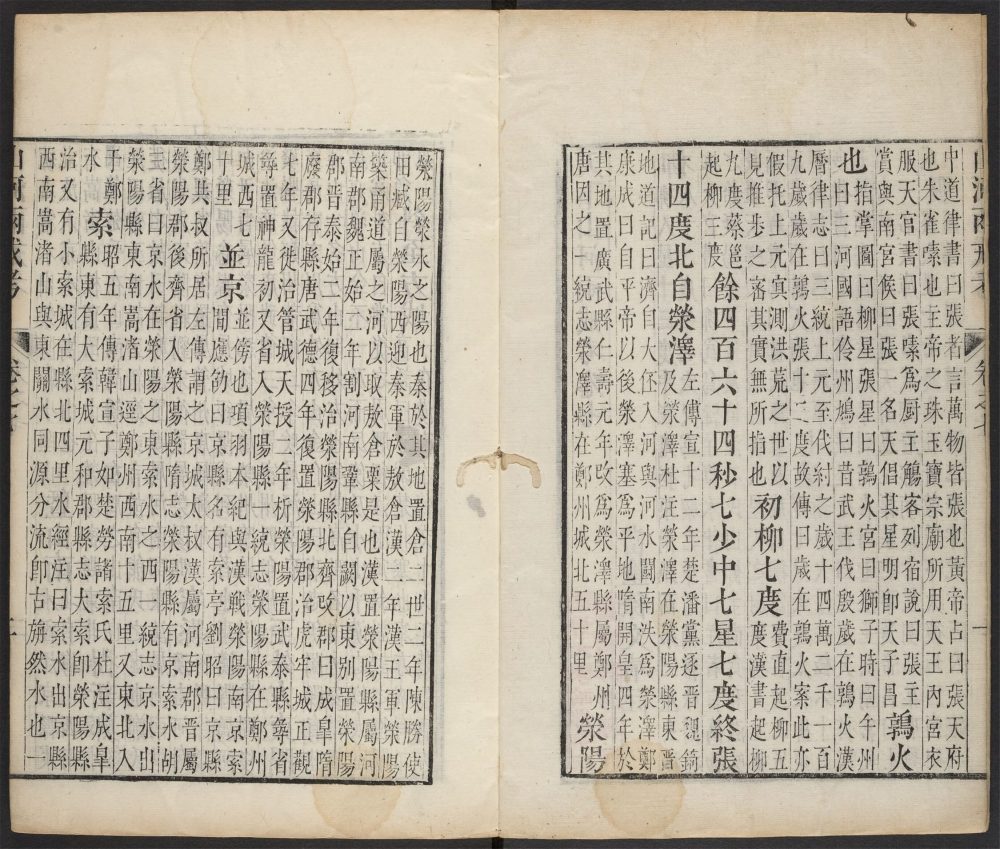 中道律書曰張者言萬物皆張也黃帝占曰張天府
也朱雀嗉也主帝之珠玉寶宗廟所用天王內宮衣
服天官書曰張嗉爲厨主觴客列宿說曰張主
賞與南宮候曰張一名天倡其星明卽天子昌
鶉火
也
指掌圖曰柳星張星曰鶉火宮曰獅子時曰午州
曰三河國語伶州鳩曰昔武王伐殷歲在鶉火漢
曆律志曰三統上元至伐紂之歲十四萬二千一百
九歲歲在鶉火張十三度故傳曰歲在鶉火案此亦
假托上元寘測洪荒之世以
見推步之密其實無所指也
初柳七度
費直起柳五
度漢書起柳
九度蔡邕
起柳三度
餘四百六十四秒七少中七星七度終張
十四度北自滎澤
左傳宣十二年楚潘黨逐晉魏錡
及滎澤杜注滎澤在滎陽縣東晉
地道記曰濟自大伾入河與河水鬬南泆爲滎澤鄭
康成曰自平帝以後滎澤塞爲平地隋開皇四年於
其地置廣武縣仁壽元年改爲滎澤縣屬鄭州
唐因之一統志滎澤縣在鄭州城北五十里
滎陽
滎陽滎水之陽也秦於其地置倉二世二年陳勝使
田臧自滎陽西迎秦軍於敖倉漢二年漢王軍滎陽
築甬道屬之河以取敖倉粟是也漢置滎陽縣屬河
南郡魏正始二年割河南鞏縣自闕以東别置滎陽
郡晉泰始二年復移治滎陽縣北齊改郡曰成皐隋
廢郡存縣唐武德四年復置滎陽郡治虎牢城正觀
七年又徙治管城天授二年析滎陽置武泰縣尋省
尋置神龍初又省入滎陽縣一統志滎陽縣在鄭州
城西七
十里
並京
並傍也項羽本紀與漢戰滎陽南京索
間應劭曰京縣名有索亭劉昭曰京縣
鄭共叔所居左傳謂之京城太叔漢屬河南郡晉屬
滎陽郡後齊省入滎陽縣隋志滎陽縣有京索水胡
三省曰京水在滎陽之東索水之西一統志京水出
滎陽縣東南嵩渚山逕鄭州西南十五里又東北入
于鄭
水
索
昭五年傳韓宣子如楚勞諸索氏杜注成皐
縣東有大索城元和郡縣志大索卽滎陽縣
治又有小索城在縣北四里水經注曰索水出京縣
西南嵩渚山與東關水同源分流卽古旃然水也一